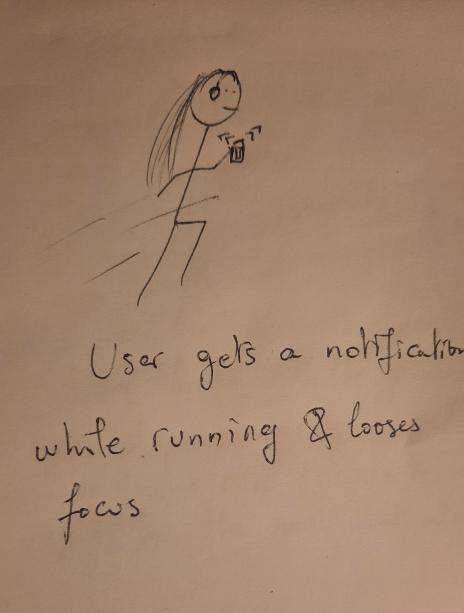 User gets a notification
while running & looses
focus